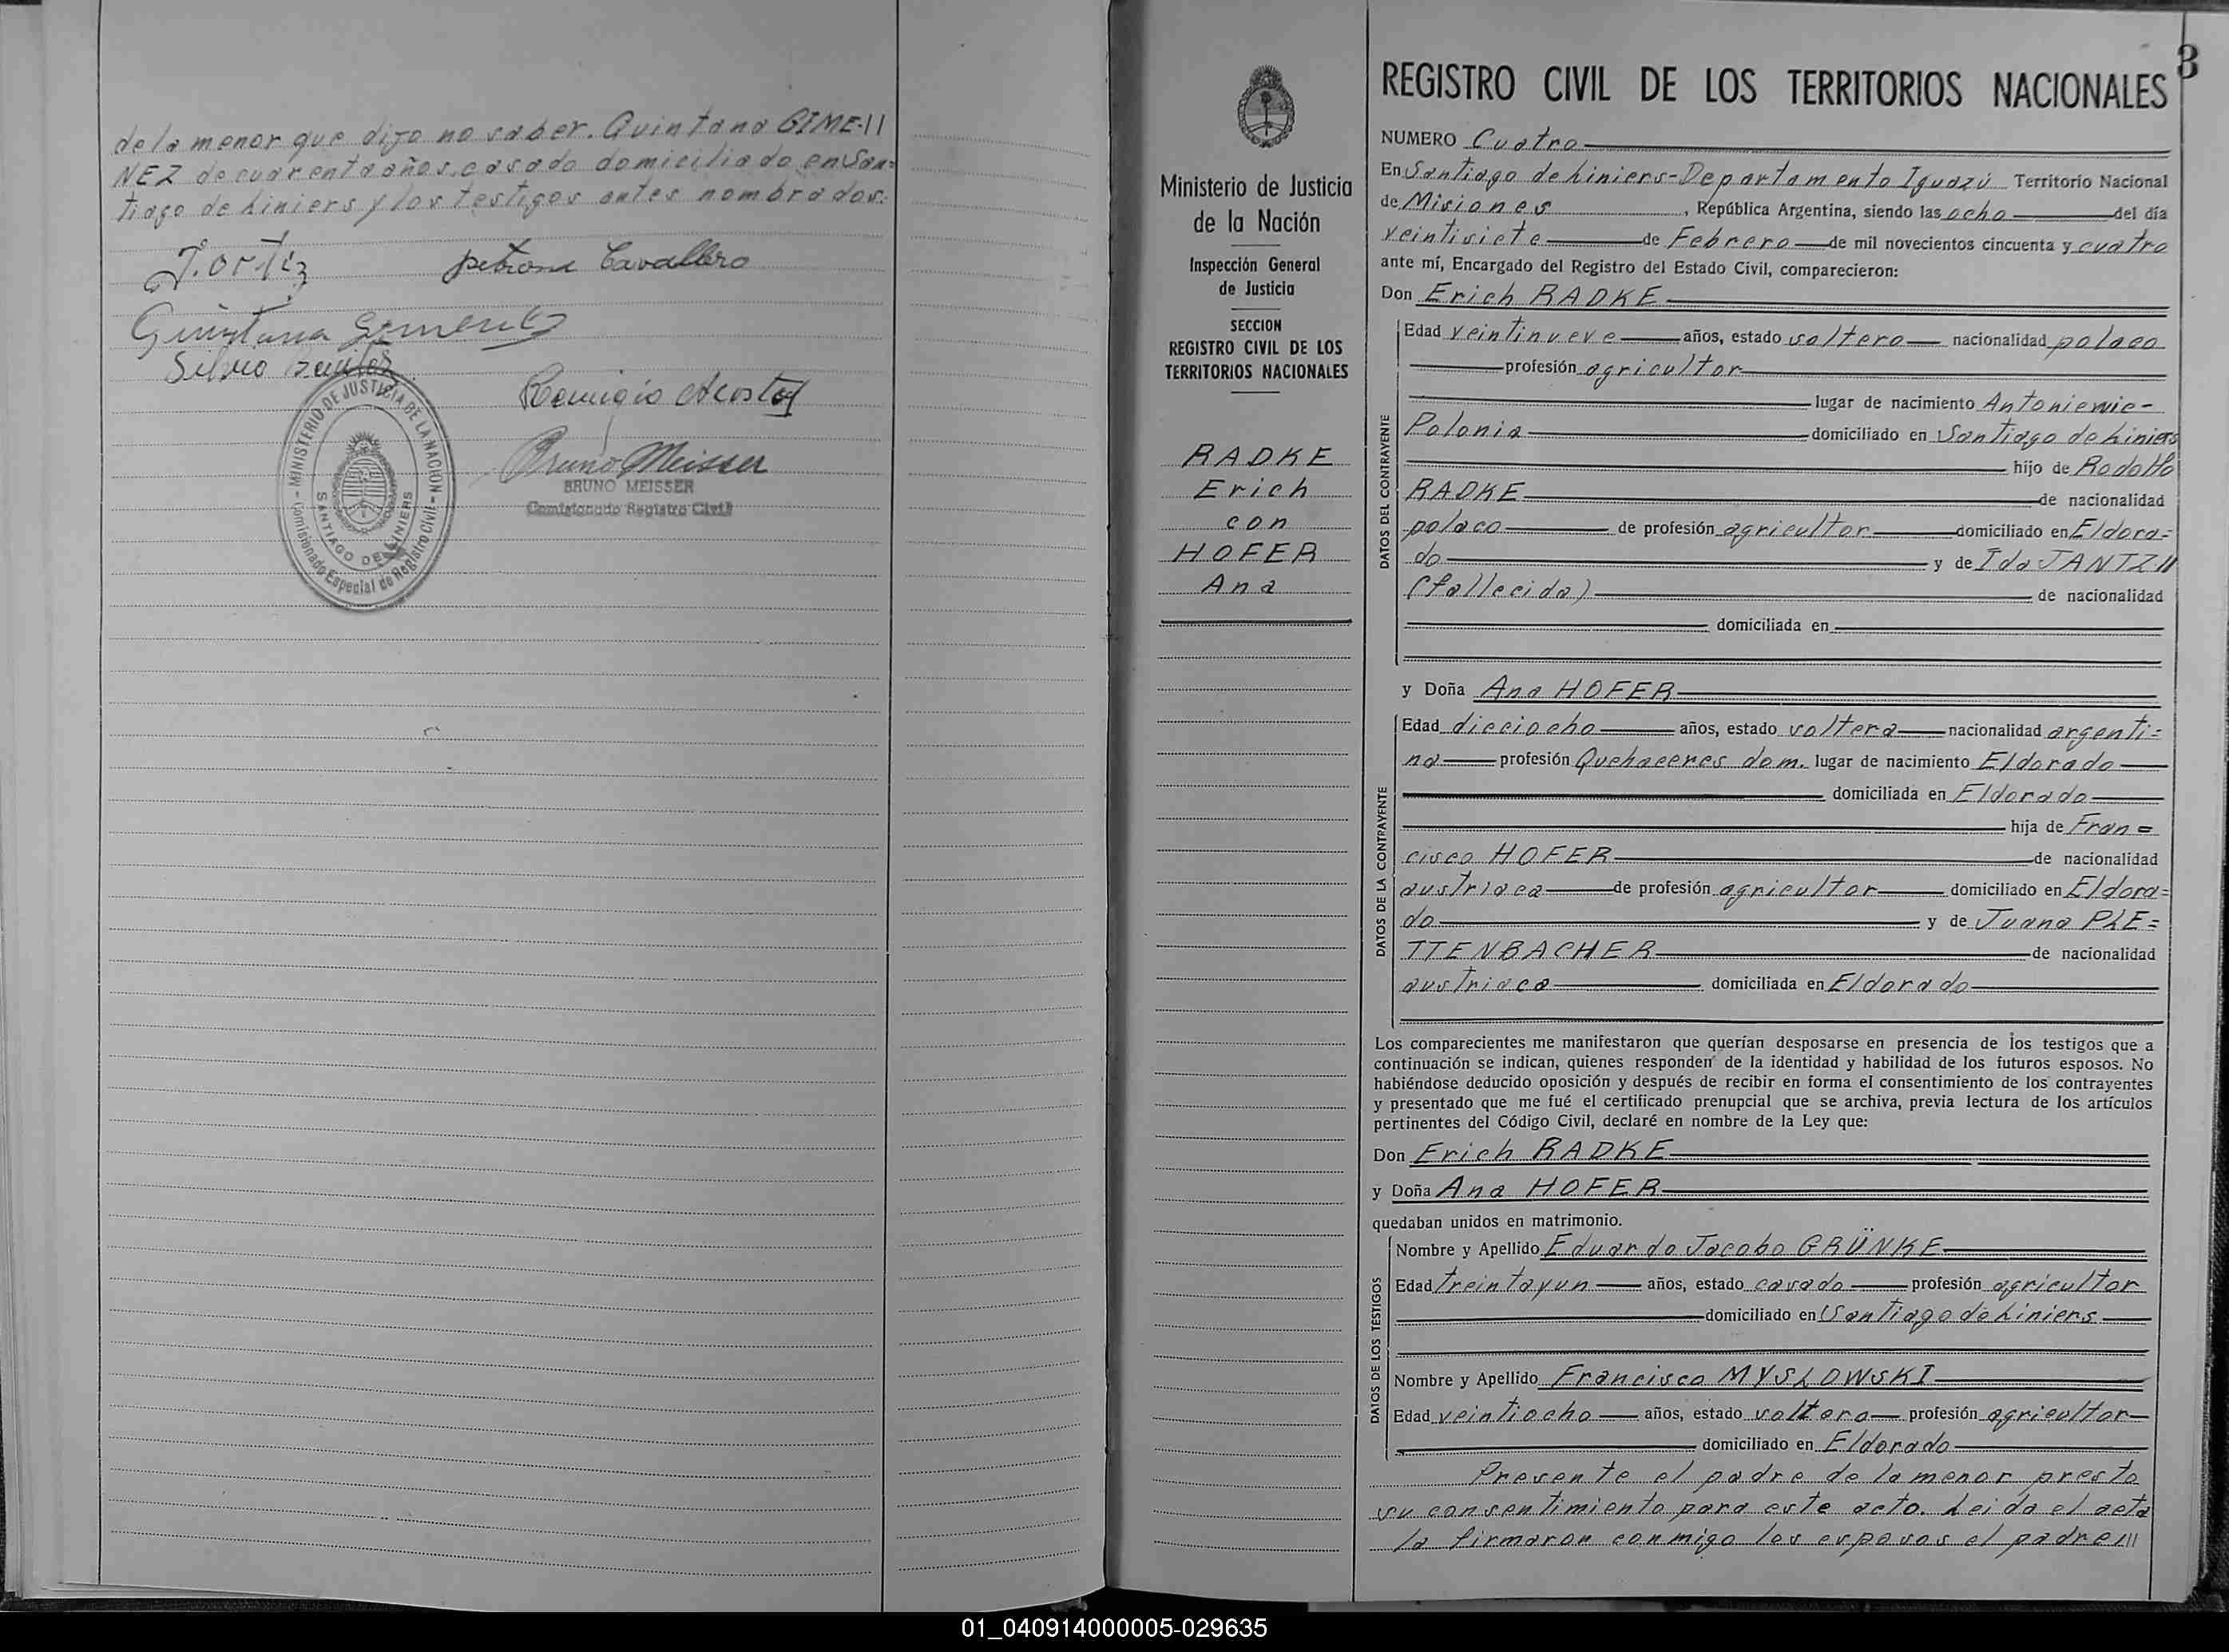 de la menor que dijo no saber. Quintana GIME-||
NEZ de cuarenta años, casado domiciliado en San=
tiago de Liniers y los testigos antes nombrados.
J. Ortiz
Petrona Cavallero
Quintana Gimenez
Silvio
Remigio Acosta
Bruno Meisser
BRUNO MEISSER
Comisionado Registro Civil
MINISTERIO DE JUSTICIA DE LA NACION
SANTIAGO DE LINIERS
Comisionado Especial de Registro Civil
3
Ministerio de Justicia
de la Nación
Inspección General
de Justicia
SECCION
REGISTRO CIVIL DE LOS
TERRITORIOS NACIONALES
RADKE
Erich
con
HOFER
Ana
REGISTRO CIVIL DE LOS TERRITORIOS NACIONALES
NUMERO Cuatro
En Santiago de Liniers-Departamento Iguazú Territorio Nacional
de Misiones, República Argentina, siendo las ocho del día
veintisiete de Febrero de mil novecientos cincuenta y cuatro
ante mí, Encargado del Registro del Estado Civil, comparecieron:
Don Erich RADKE
DATOS DEL CONTRAYENTE
Edad veintinueve años, estado soltero nacionalidad polaco
profesión agricultor
lugar de nacimiento Antoniewie-
Polonia domiciliado en Santiago de Liniers
hijo de Rodolfo
RADKE de nacionalidad
polaco de profesión agricultor domiciliado en Eldora=
do y de Ida JANTZ ||
(fallecida) de nacionalidad
domiciliada en
y Doña Ana HOFER
DATOS DE LA CONTRAYENTE
Edad dieciocho años, estado soltera nacionalidad argenti=
na profesión Quehaceres dom. lugar de nacimiento Eldorado
domiciliada en Eldorado
hija de Fran=
cisco HOFER de nacionalidad
austriaca de profesión agricultor domiciliado en Eldora=
do y de Juana PLE=
TTENBACHER de nacionalidad
austriaca domiciliada en Eldorado
Los comparecientes me manifestaron que querían desposarse en presencia de los testigos que a
continuación se indican, quienes responden de la identidad y habilidad de los futuros esposos. No
habiéndose deducido oposición y después de recibir en forma el consentimiento de los contrayentes
y presentado que me fué el certificado prenupcial que se archiva, previa lectura de los artículos
pertinentes del Código Civil, declaré en nombre de la Ley que:
Don Erich RADKE
y Doña Ana HOFER
quedaban unidos en matrimonio.
DATOS DE LOS TESTIGOS
Nombre y Apellido Eduardo Jacobo GRÜNKE
Edad treintayun años, estado casado profesión agricultor
domiciliado en Santiago de Liniers
Nombre y Apellido Francisco MYSLOWSKI
Edad veintiocho años, estado soltero profesión agricultor
domiciliado en Eldorado
Presente el padre de la menor presta
su consentimiento para este acto. Leida el acta
la firmaron conmigo los esposos el padre |||
01_040914000005-029635